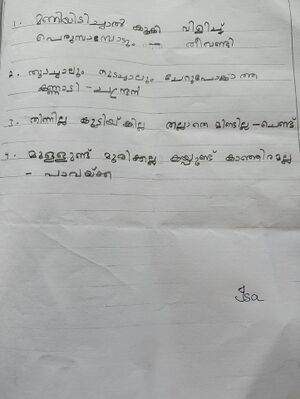 1. മണിയടിച്ചാൽ കൂകി വിളിച്ച്
പെരുമ്പാമ്പോടും -- തീവണ്ടി
2. തുടച്ചാലും തുടച്ചാലും ചേറുപോകാത്ത
കണ്ണാടി - ചന്ദ്രൻ
3. തിന്നില്ല കുടിയ്ക്കില്ല തല്ലാതെ മിണ്ടില്ല - ചെണ്ട
4. മുള്ളുണ്ട് മുരിക്കല്ല കയ്പ്പുണ്ട് കാഞ്ഞിരമല്ല
- പാവയ്ക്ക
Isa